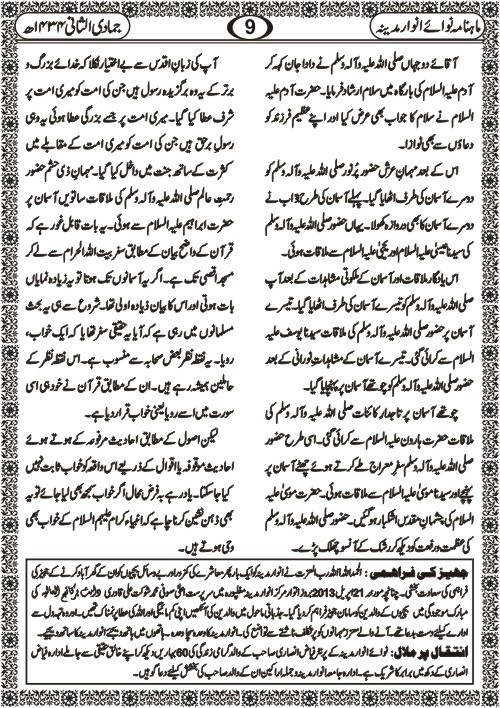 ماہنامہ نوائے انوار مدینہ
9
جمادی الثانی ۱۴۳۴ھ
آقائے دو جہاں صلی اللہ علیہ وآلہ وسلم نے دادا جان کہہ کر
آدم علیہ السلام کی بارگاہ میں سلام ارشاد فرمایا۔ حضرت آدم علیہ
السلام نے سلام کا جواب بھی عرض کیا اور اپنے عظیم فرزند کو
دعاؤں سے بھی نوازا۔
اس کے بعد مہمانِ عرش حضور پُر نور صلی اللہ علیہ وآلہ وسلم کو
دوسرے آسمان کی طرف اٹھایا گیا۔ پہلے آسمان کی طرح بواب نے
دوسرے آسمان کا بھی دروازہ کھولا۔ یہاں حضور صلی اللہ علیہ وآلہ وسلم
کی سیدنا عیسیٰ علیہ السلام اور یحییٰ علیہ السلام سے ملاقات ہوئی۔
اس یادگار ملاقات اور آسمان کے ملکوتی مشاہدات کے بعد آپ
صلی اللہ علیہ وآلہ وسلم کو تیسرے آسمان کی طرف اٹھایا گیا۔ تیسرے
آسمان پر حضور صلی اللہ علیہ وآلہ وسلم کی ملاقات سیدنا یوسف علیہ
السلام سے کرائی گئی۔ تیسرے آسمان کے مشاہداتِ نورانی کے بعد
حضور صلی اللہ علیہ وآلہ وسلم کو چوتھے آسمان پر پہنچایا گیا۔
چوتھے آسمان پر تاجدارِ کائنات صلی اللہ علیہ وآلہ وسلم کی
ملاقات حضرت ہارون علیہ السلام سے کرائی گئی۔ اسی طرح حضور
صلی اللہ علیہ وآلہ وسلم سفرِ معراج طے کرتے ہوئے چھٹے آسمان پر
پہنچے اور سیدنا موسیٰ علیہ السلام سے ملاقات ہوئی۔ حضرت موسیٰ علیہ
السلام کی چشمانِ مقدس اشکبار ہو گئیں۔ حضور صلی اللہ علیہ وآلہ وسلم
کی عظمت و رفعت کو دیکھ کر رشک کے آنسو چھلک پڑے۔
آپ کی زبانِ اقدس سے بے اختیار نکلا کہ خدائے بزرگ و
برتر کے یہ وہ برگزیدہ رسول ہیں جن کی امت کو میری امت پر
شرف عطا کیا گیا۔ میری امت پر جسے بزرگی عطا ہوئی یہ وہی
رسولِ برحق ہیں جن کی امت کو میری امت کے مقابلے میں
کثرت کے ساتھ جنت میں داخل کیا گیا۔ مہمانِ ذی حشم حضور
رحمتِ عالم صلی اللہ علیہ وآلہ وسلم کی ملاقات ساتویں آسمان پر
حضرت ابراہیم علیہ السلام سے ہوئی۔ یہ بات قابل غور ہے کہ
قرآن کے واضح بیان کے مطابق سفر بیت اللہ الحرام سے لے کر
مسجد اقصی تک ہے۔ اگر یہ آسمانوں تک ہوتا تو یہ زیادہ نمایاں
بات ہوتی اور اس کا بیان زیادہ اولی تھا۔ شروع سے ہی یہ بحث
مسلمانوں میں رہی ہے کہ آیا یہ حقیقی سفر تھا یا کہ ایک خواب،
رویا۔ یہ نقطہ نظر بعض صحابہ سے منسوب ہے۔ اس نقطہ نظر کے
حاملین ہمیشہ رہے ہیں۔ ان کے مطابق قرآن نے خود ہی اسی
سورت میں اسے رویا یعنی خواب قرار دیا ہے۔
لیکن اصول کے مطابق احادیث مرفوعہ کے ہوتے ہوئے
احادیث موقوفہ یا اقوال کے ذریعے اس واقعہ کو خواب ثابت نہیں
کیا جا سکتا۔ یاد رہے بہ فرض محال اگر خواب سمجھ بھی لیا جائے تو یہ
بھی ذہن نشین کرنا چاہیے کہ انبیاء کرام علیہم السلام کے خواب بھی
وحی ہوتے ہیں۔
جہیز کی فراہمی :
انتقال پر ملال: